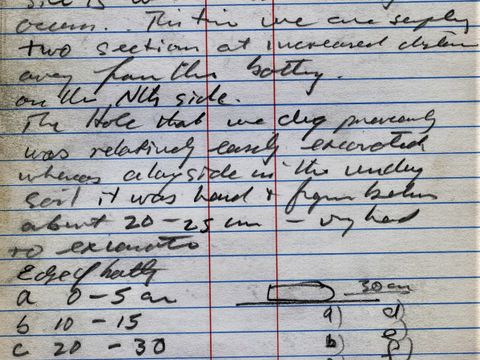 occurs. This time we are sampling
two sections at increased distance
away from the battery.
on the Nth side.
The Hole that we dug previously
was relatively easily excavated
whereas alongside in the
soil it was hard & firm below
about 20 - 25 cm - very hard
to excavate
Edge of battery
a 0 - 5 cm
b 10 - 15
c 20 - 30
30 cm
a) d)
b) e)
f)